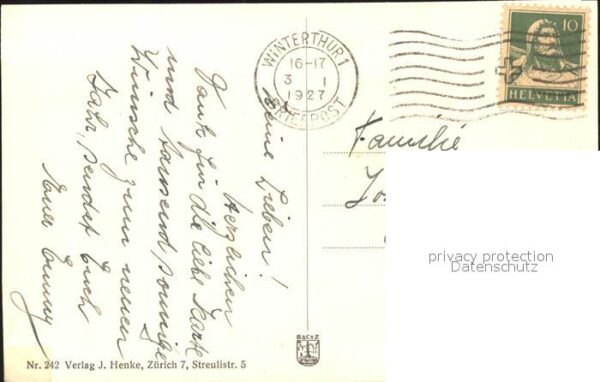 WINTERTHUR 1
16-17
3 I
1927
BRIEFPOST
10
HELVETIA
Meine Lieben!
Herzlichen
Dank für die liebe Karte
und tausend sonnige
Wünsche zum neuen
Jahr, sendet Euch
Euer Emmy
Familie
Jo
privacy protection
Datenschutz
Nr. 242 Verlag J. Henke, Zürich 7, Streulistr. 5